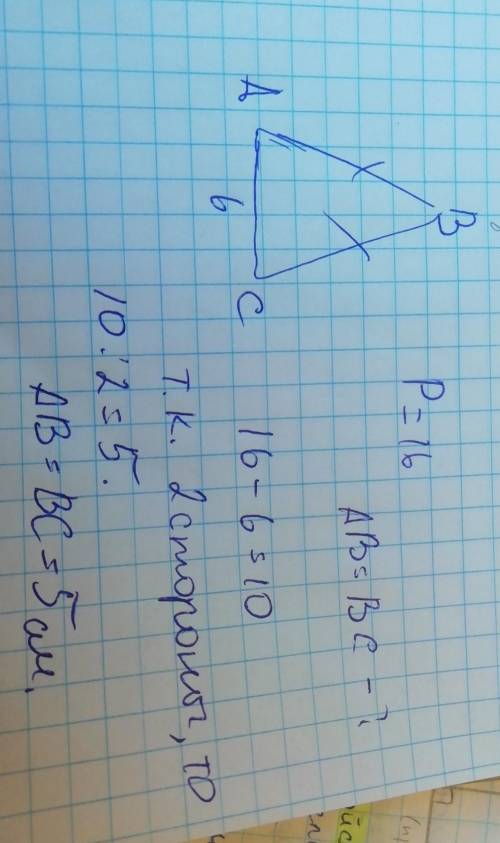 B
A
6
C
P = 16
AB = BC - ?
16 - 6 = 10
т.к. 2 стороны, то
10 : 2 = 5.
AB = BC = 5 см.